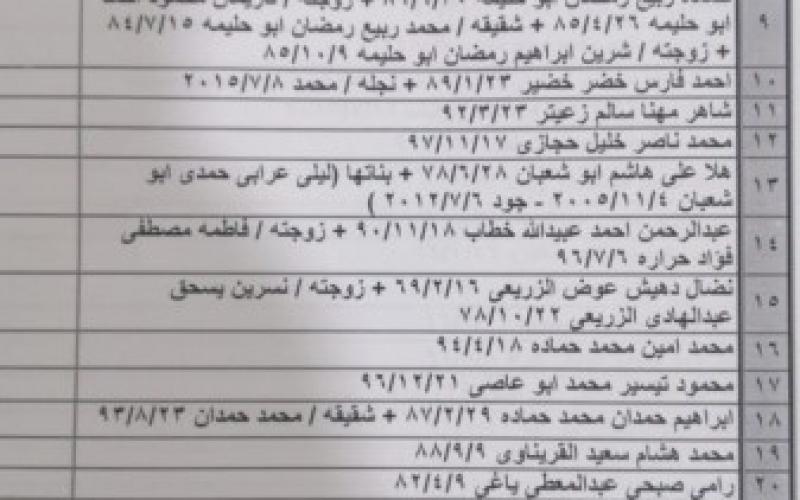 ٩
ابو حليمه ٨٥/٤/٢٦ + شقيقه / محمد ربيع رمضان ابو حليمه ٨٤/٧/١٥
+ زوجته / شرين ابراهيم رمضان ابو حليمه ٨٥/١٠/٩
١٠ احمد فارس خضر خضير ٨٩/١/٢٣ + نجله / محمد ٢٠١٥/٧/٨
١١ شاهر مهنا سالم زعيتر ٩٢/٣/٢٣
١٢ محمد ناصر خليل حجازي ٩٧/١١/١٧
١٣ هلا علي هاشم ابو شعبان ٧٨/٦/٢٨ + بناتها (ليلى عرابي حمدي ابو
شعبان ٢٠٠٥/١١/٤ - جود ٢٠١٢/٧/٦ )
١٤ عبدالرحمن احمد عبيدالله خطاب ٩٠/١١/١٨ + زوجته / فاطمه مصطفى
فؤاد حراره ٩٦/٧/٦
١٥ نضال دهيش عوض الزريعي ٦٩/٢/١٦ + زوجته / نسرين يسحق
عبدالهادي الزريعي ٧٨/١٠/٢٢
١٦ محمد امين محمد حماده ٩٤/٤/١٨
١٧ محمود تيسير محمد ابو عاصي ٩٦/١٢/٢١
١٨ ابراهيم حمدان محمد حماده ٨٧/٢/٢٩ + شقيقه / محمد حمدان ٩٣/٨/٢٣
١٩ محمد هشام سعيد القريناوي ٨٨/٩/٩
٢٠ رامي صبحي عبدالمعطي ياغي ٨٢/٤/٩